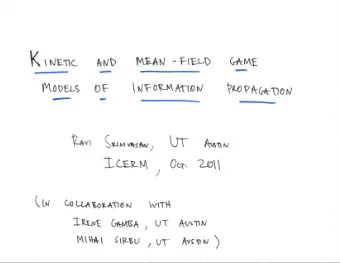 KINETIC AND MEAN-FIELD GAME
MODELS OF INFORMATION PROPAGATION
RAVI SRINIVASAN, UT AUSTIN
ICERM, OCT. 2011
(IN COLLABORATION WITH
IRENE GAMBA, UT AUSTIN
MIHAI SIRBU, UT AUSTIN)